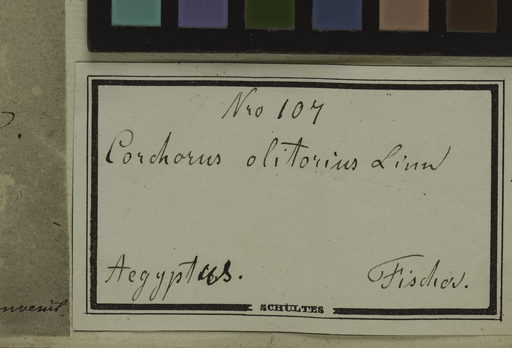 Nro 107
Corchorus olitorius Linn
Aegyptus.
Fischer.
SCHULTES